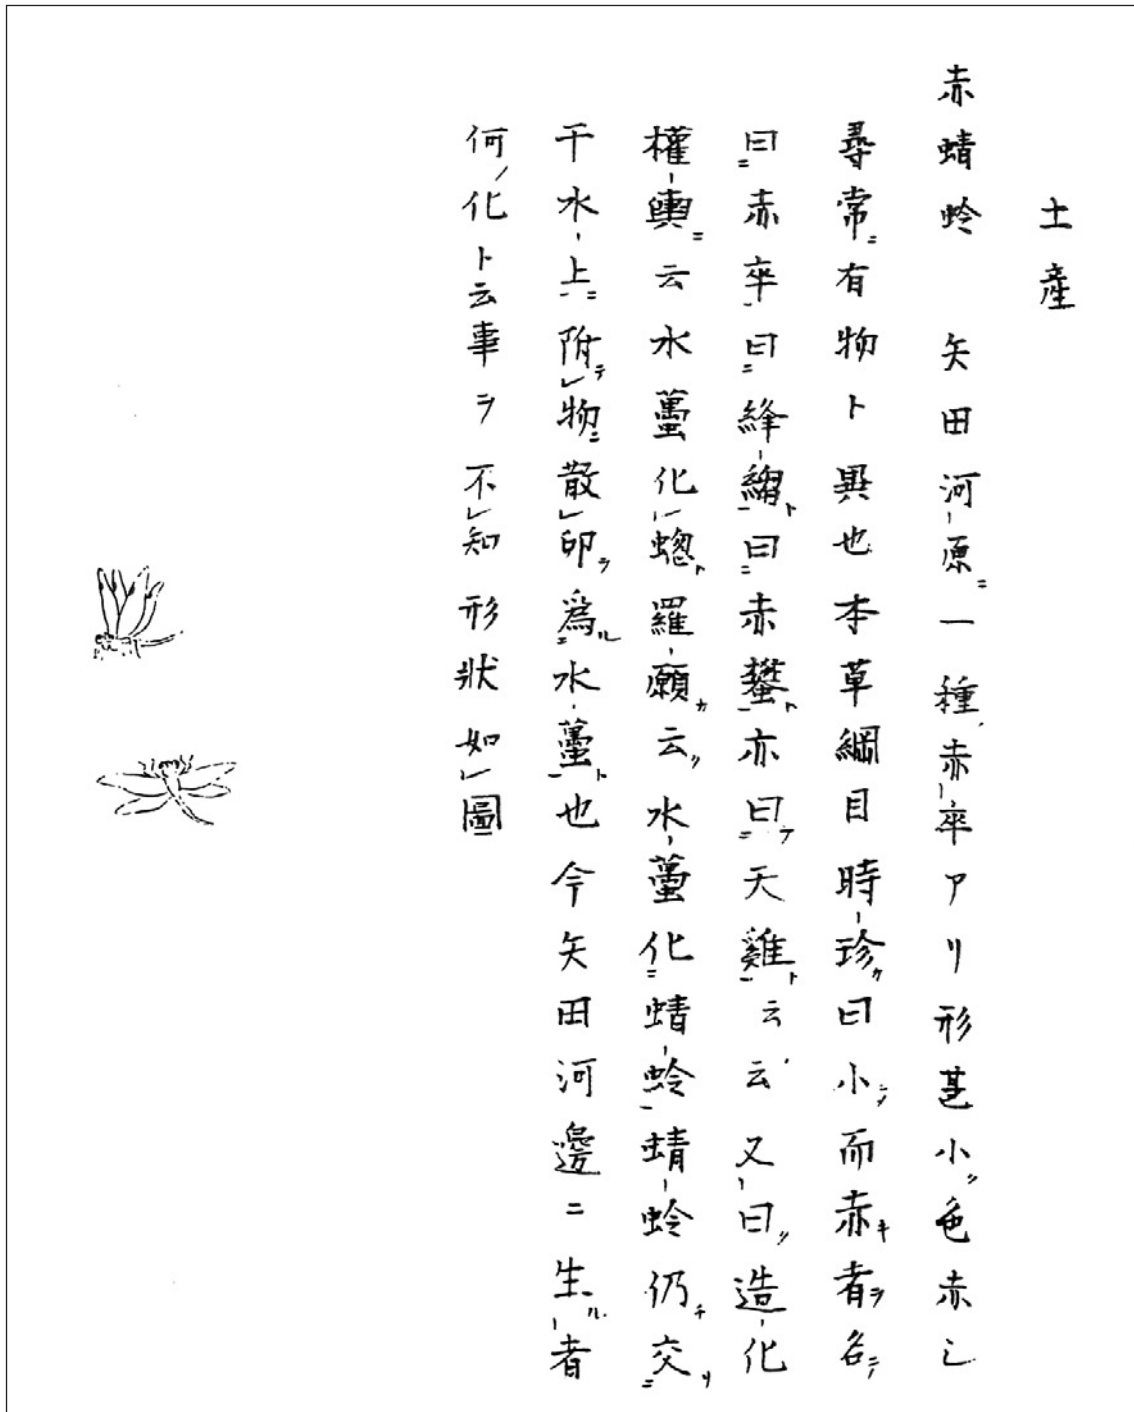 土産
赤蜻蛉 矢田河原ニ一種赤卒アリ形甚小ツ色赤シ
尋常ニ有物ト異也本草綱目時珍カ曰小ニノ而赤キ者ヲ名ニノ
曰赤卒曰絳縐ト曰赤蠜ト亦曰フ天雞ト云云又曰ツ造化
權輿ニ云水蠆化蟌ト羅願カ云ツ水蠆化蜻蛉蜻蛉仍チ交リ
于水上ニ附テ物ニ散卵ヲ爲ル水蠆ト也今矢田河邊ニ生ル者
何ノ化ト云事ヲ不知形狀如圖